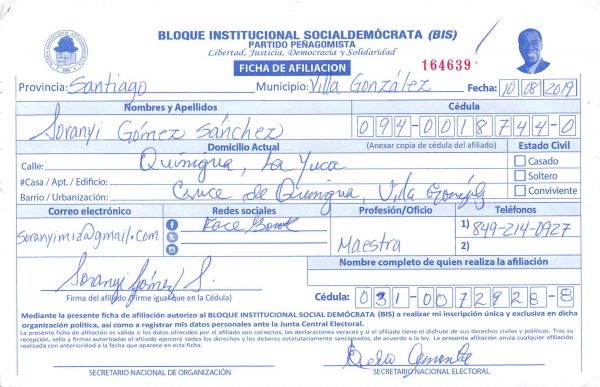 BLOQUE INSTITUCIONAL SOCIALDEMÓCRATA (BIS)
PARTIDO PEÑAGOMISTA
Libertad, Justicia, Democracia y Solidaridad
FICHA DE AFILIACION
164639
Provincia: Santiago Municipio: Villa González Fecha: 10 08 2019
Nombres y Apellidos Cédula
Soranyi Gómez Sánchez 094-0018744-0
Domicilio Actual (Anexar copia de cédula del afiliado) Estado Civil
Calle: Quinigua, La Yuca Casado
#Casa / Apt. / Edificio: Soltero
Barrio / Urbanización: Cruce de Quinigua, Villa González Conviviente
Correo electrónico Redes sociales Profesión/Oficio Teléfonos
soranyimiz@gmail.com Face Maestra 1) 849-214-0927
2)
Nombre completo de quien realiza la afiliación
Soranyi Gómez S.
Firma del afiliado (Firme igual que en la Cédula) Cédula: 031-0072928-8
Mediante la presente ficha de afiliación autorizo al BLOQUE INSTITUCIONAL SOCIAL DEMÓCRATA (BIS) a realizar mi inscripción única y exclusiva en dicha
organización política, así como a registrar mis datos personales ante la Junta Central Electoral.
La presente ficha de afiliación es válida si los datos ofrecidos por el afiliado son correctos, las declaraciones veraces y si el afiliado tiene el disfrute de sus derechos civiles y políticos. Tras su
recepción, sello y firmas autorizadas el afiliado ejercerá todos los derechos y los deberes estatutariamente sancionados, de acuerdo a la ley. La presente afiliación anula cualquier afiliación
realizada con anterioridad a la fecha que aparece en esta ficha.
SECRETARIO NACIONAL DE ORGANIZACIÓN SECRETARIO NACIONAL ELECTORAL